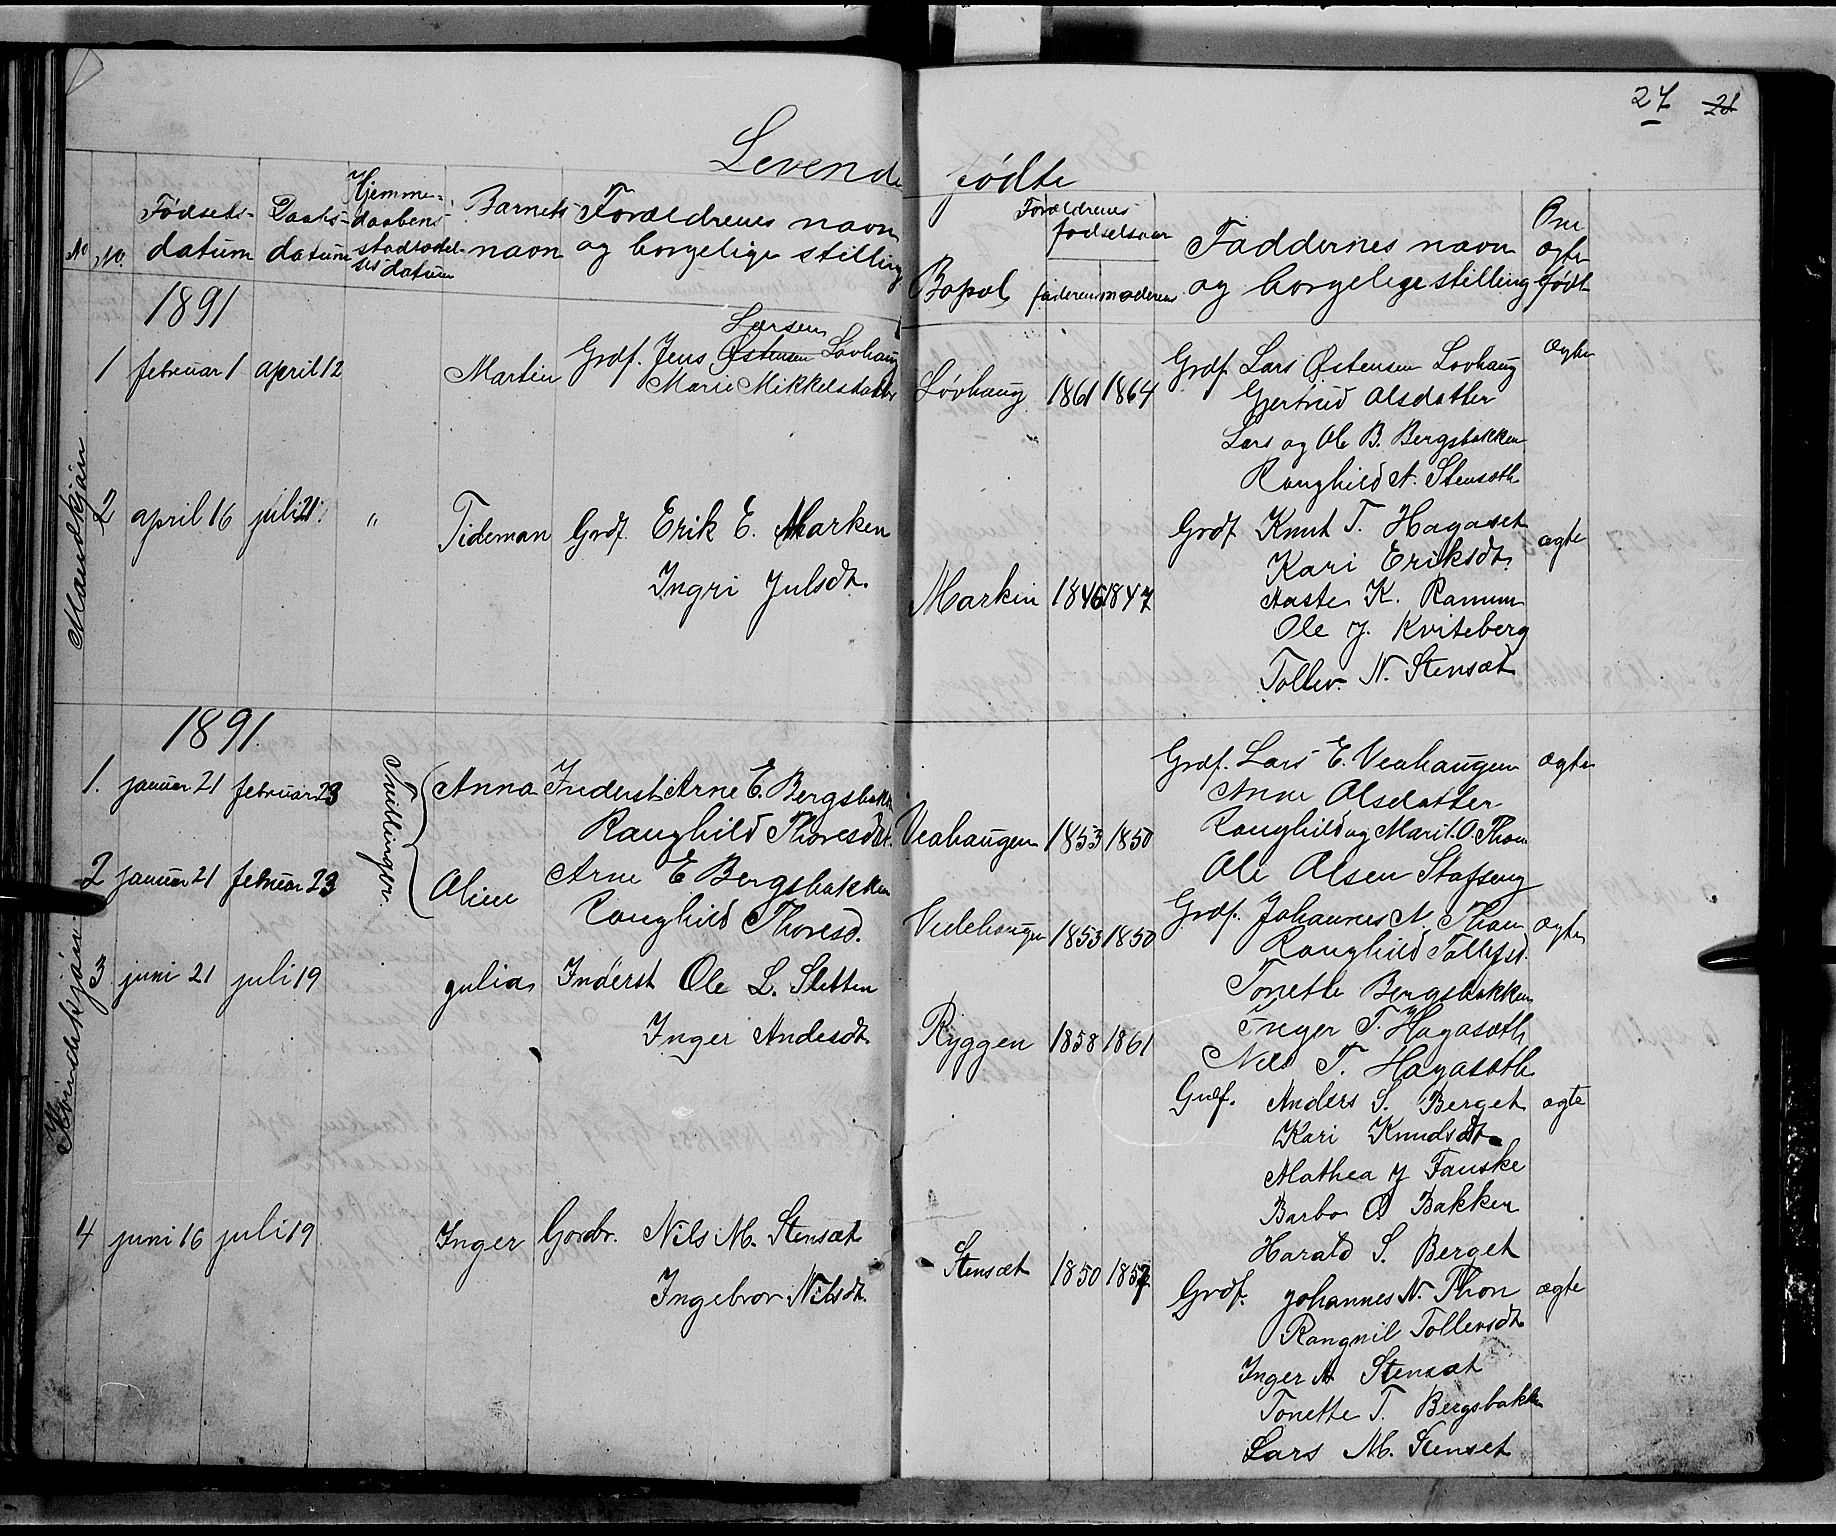 27 28
Levende fødte
No. No. Fødsels-datum Daabs-datum Hjemme-daabens stadfæstel-ses datum Barnets navn Forældrenes navn og borgelige stilling Bopæl Forældrenes fødselsaar faderens moderens Faddernes navn og borgelige stilling Om ægte født
Mandkjøn
1891
1 februar 1 april 12 Martin Grdf. Jens Østensen Larsen Løvhaug Løvhaug 1861 1864 Grdf. Lars Østensen Lovhaug Ægte
Marie Mikkelsdatter
Gjertrud Olsdatter
Lars og Ole B. Bergsbakken
Ranghild N. Stensæth
2 april 16 juli 21 " Tideman Grdf. Erik E. Marken Markin 1846 1847 Grdf Knut T. Hagaset ægte
Ingri Julsdt.
Kari Eriksdt.
Aaste K. Ramum
Ole J. Kviteberg
Tollev N. Stensæt
Kvindekjøn
1891.
1. januar 21 februar 23 Tvillinger Anna Inderst Arne E. Bergsbakk Veahaugen 1853 1850 Grdf. Lars E. Veahaugen ægte
Ranghild Thoresdt.
Anne Olsdatter
Ranghild og Marit O. Thon
Ole Olsen Stafseng
2 januar 21 februar 23 Oline Arne E Bergsbakken Vedehaugen 1853 1850 Grdf. Johannes N. Thon ægte
Ranghild Thoresd.
Ranghild Tollefsd.
Tonette Bergsbakken
Inger T. Hagasæth
Nels T. Hagasæth
3 juni 21 juli 19 Julia Inderst Ole L. Sletten Ryggen 1858 1861 Grdf. Anders S. Berget ægte
Inger Andesdt
Kari Knudsdt
Mathea J Fauske
Barbo O Bakken
Harald S. Berget
4 juni 16 juli 19 Inger Gordbr. Nils M. Stensæt Stensæt 1850 1857 Grdf. Johannes N. Thon ægte
Ingebror Nilsdt.
Rangnil Tollevsdt
Inger N Stensæt
Tonette T. Bergsbakken
Lars M. Stenset